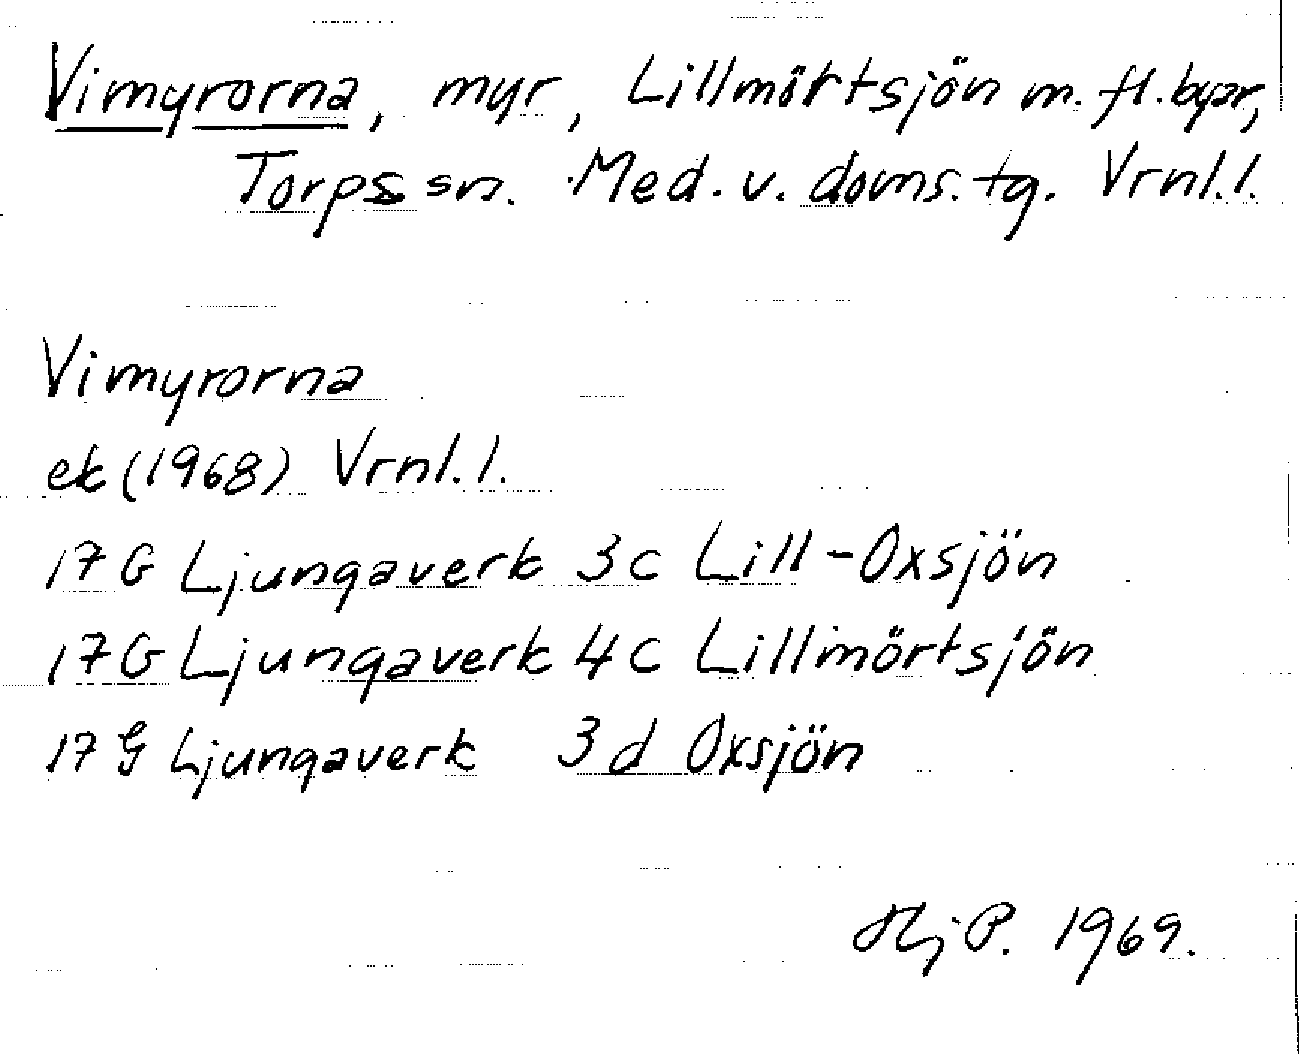 Vimyrorna, myr, Lillmörtsjön m. fl. byar,
Torps sn. Med. v. doms. tg. Vrnl. l.
Vimyrorna
ek (1968) Vrnl. l.
17 G Ljungaverk 3c Lill-Oxsjön
17 G Ljungaverk 4c Lillmörtsjön
17 G Ljungaverk 3d Oxsjön
Hj P. 1969.